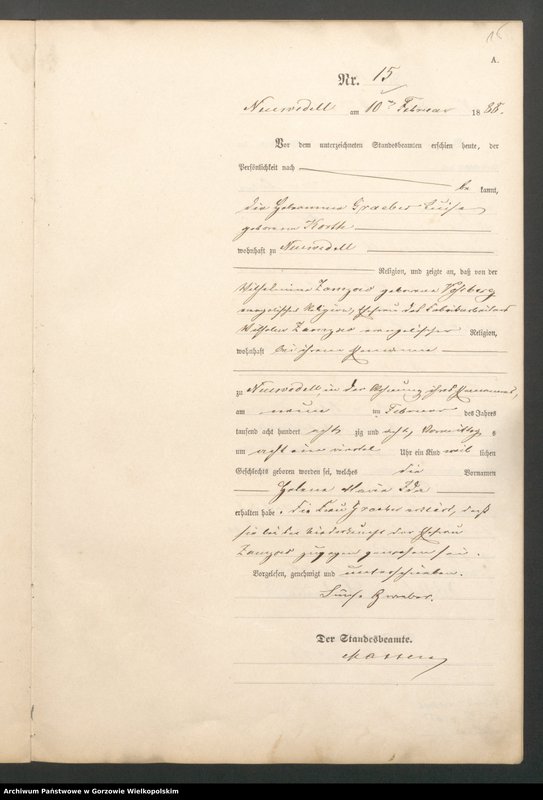 15
A.
Nr. 15
Neuwedell am 10ten Februar 1888.
Vor dem unterzeichneten Standesbeamten erschien heute, der
Persönlichkeit nach
be kannt,
die Hebamme Graeber Luise
geborene Korth
wohnhaft zu Neuwedell
Religion, und zeigte an, daß von der
Wilhelmine Zamzow geborene
evangelischer Religion, Ehefrau des
Wilhelm Zamzow evangelischer Religion,
wohnhaft bei ihrem Ehemanne
zu Neuwedell, in der Wohnung ihres Ehemannes,
am neun ten Februar des Jahres
tausend acht hundert acht zig und acht, Vormittag s
um acht ein viertel Uhr ein Kind weib lichen
Geschlechts geboren worden sei, welches die Vornamen
Helene Maria Ida
erhalten habe. Die Frau Graeber erklärt, daß
sie bei der Niederkunft der Ehefrau
Zamzow zugegen gewesen sei.
Vorgelesen, genehmigt und unterschrieben.
Luise Graeber.
Der Standesbeamte.
Archiwum Państwowe w Gorzowie Wielkopolskim